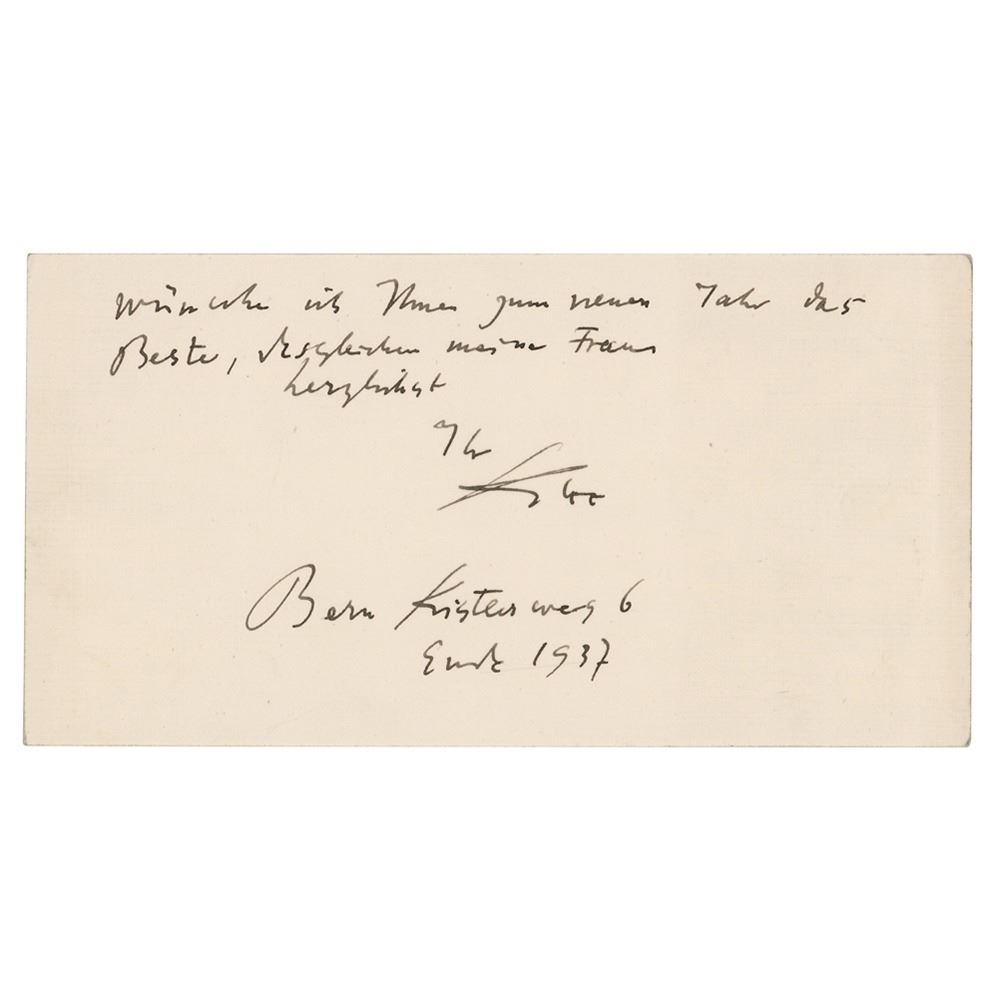 wünsche ich Ihnen zum neuen Jahr das
Beste, desgleichen meine Frau
herzlichst
Ihr
Klee
Bern Kistlerweg 6
Ende 1937